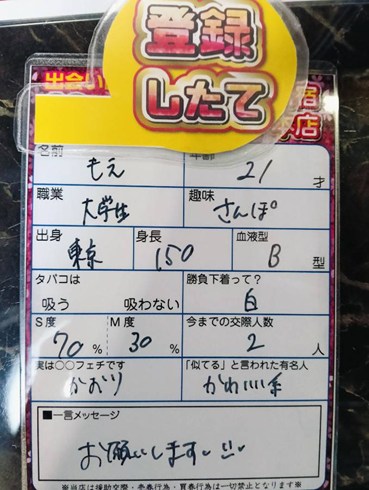 登録
したて
出会い
宿
店
名前 もえ 年齢 21才
職業 大学生 趣味 さんぽ
出身 東京 身長 150 血液型 B型
タバコは 吸う 吸わない 勝負下着って? 白
S度 70% M度 30% 今までの交際人数 2人
実は○○フェチです かおり 「似てる」と言われた有名人 かわいい系
■一言メッセージ
お願いします
※当店は援助交際・売春行為・買春行為は一切禁止となります※